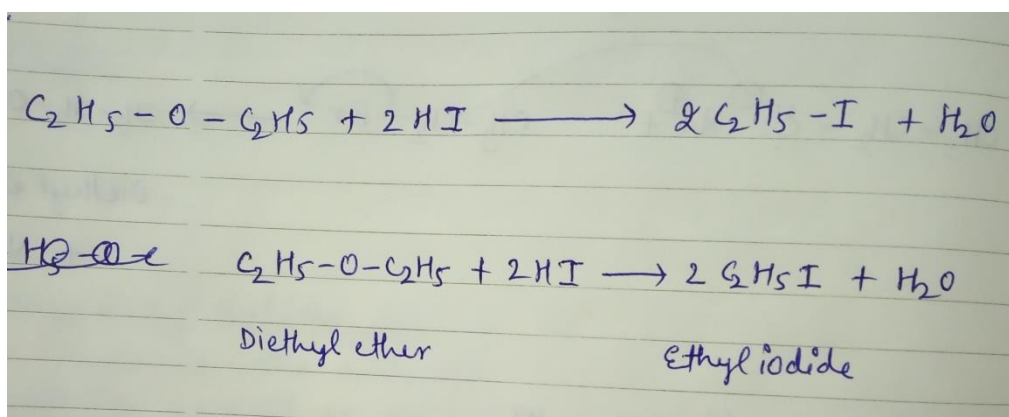 C2H5-O-C2H5 + 2HI ⟶ 2C2H5-I + H2O
C2H5-O-C2H5 + 2HI ⟶ 2C2H5I + H2O
Diethyl ether Ethyl iodide